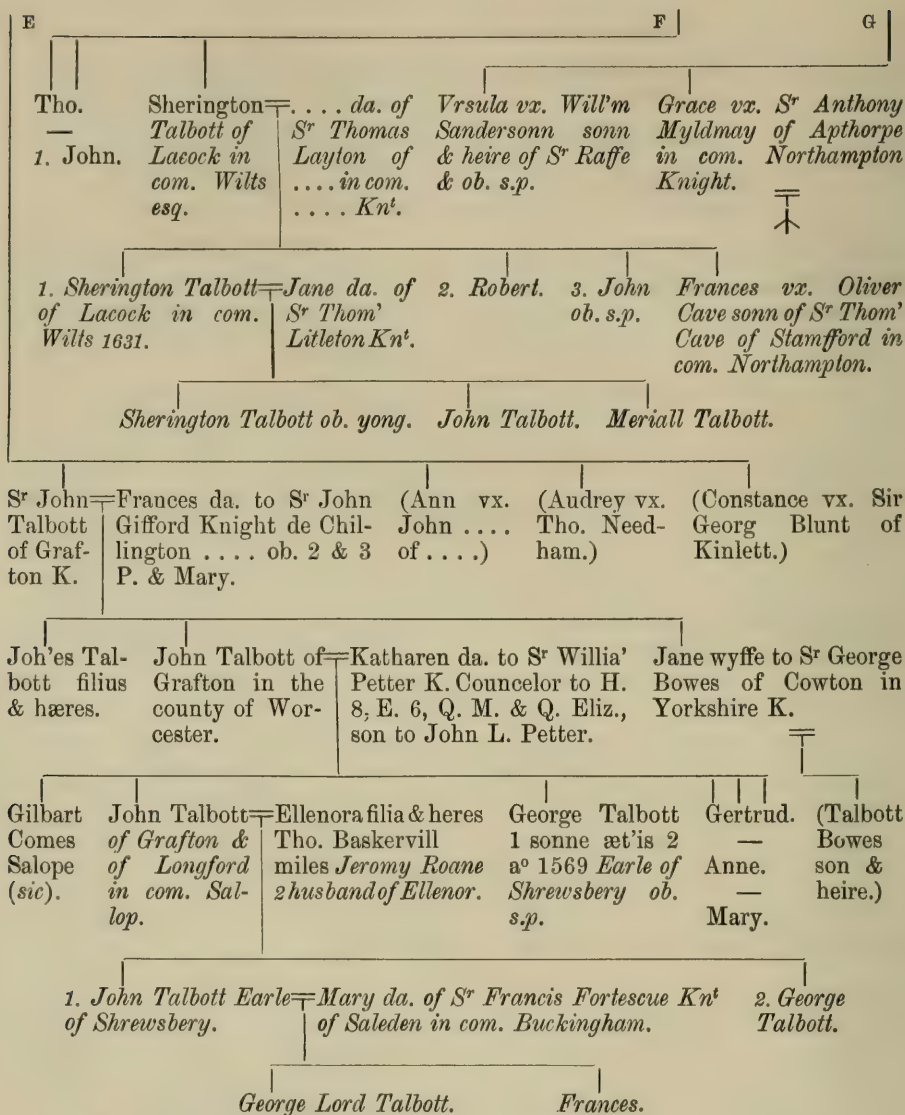 E F G
Tho.
—
1. John.
Sherington
Talbott of
Lacock in
com. Wilts
esq.
. . . . da. of
Sʳ Thomas
Layton of
. . . . in com.
. . . . Knᵗ.
Vrsula vx. Will'm
Sandersonn sonn
& heire of Sʳ Raffe
& ob. s.p.
Grace vx. Sʳ Anthony
Myldmay of Apthorpe
in com. Northampton
Knight.
1. Sherington Talbott
of Lacock in com.
Wilts 1631.
Jane da. of
Sʳ Thom'
Litleton Knᵗ.
2. Robert.
3. John
ob. s.p.
Frances vx. Oliver
Cave sonn of Sʳ Thom'
Cave of Stamfford in
com. Northampton.
Sherington Talbott ob. yong. John Talbott. Meriall Talbott.
Sʳ John
Talbott
of Graf-
ton K.
Frances da. to Sʳ John
Gifford Knight de Chil-
lington . . . . ob. 2 & 3
P. & Mary.
(Ann vx.
John . . . .
of . . . .)
(Audrey vx.
Tho. Need-
ham.)
(Constance vx. Sir
Georg Blunt of
Kinlett.)
Joh'es Tal-
bott filius
& hæres.
John Talbott of
Grafton in the
county of Wor-
cester.
Katharen da. to Sʳ Willia'
Petter K. Councelor to H.
8, E. 6, Q. M. & Q. Eliz.,
son to John L. Petter.
Jane wyffe to Sʳ George
Bowes of Cowton in
Yorkshire K.
Gilbart
Comes
Salope
(sic).
John Talbott
of Grafton &
of Longford
in com. Sal-
lop.
Ellenora filia & heres
Tho. Baskervill
miles Jeromy Roane
2 husband of Ellenor.
George Talbott
1 sonne æt'is 2
aᵒ 1569 Earle of
Shrewsbery ob.
s.p.
Gertrud.
—
Anne.
—
Mary.
(Talbott
Bowes
son &
heire.)
1. John Talbott Earle
of Shrewsbery.
Mary da. of Sʳ Francis Fortescue Knᵗ
of Saleden in com. Buckingham.
2. George
Talbott.
George Lord Talbott. Frances.